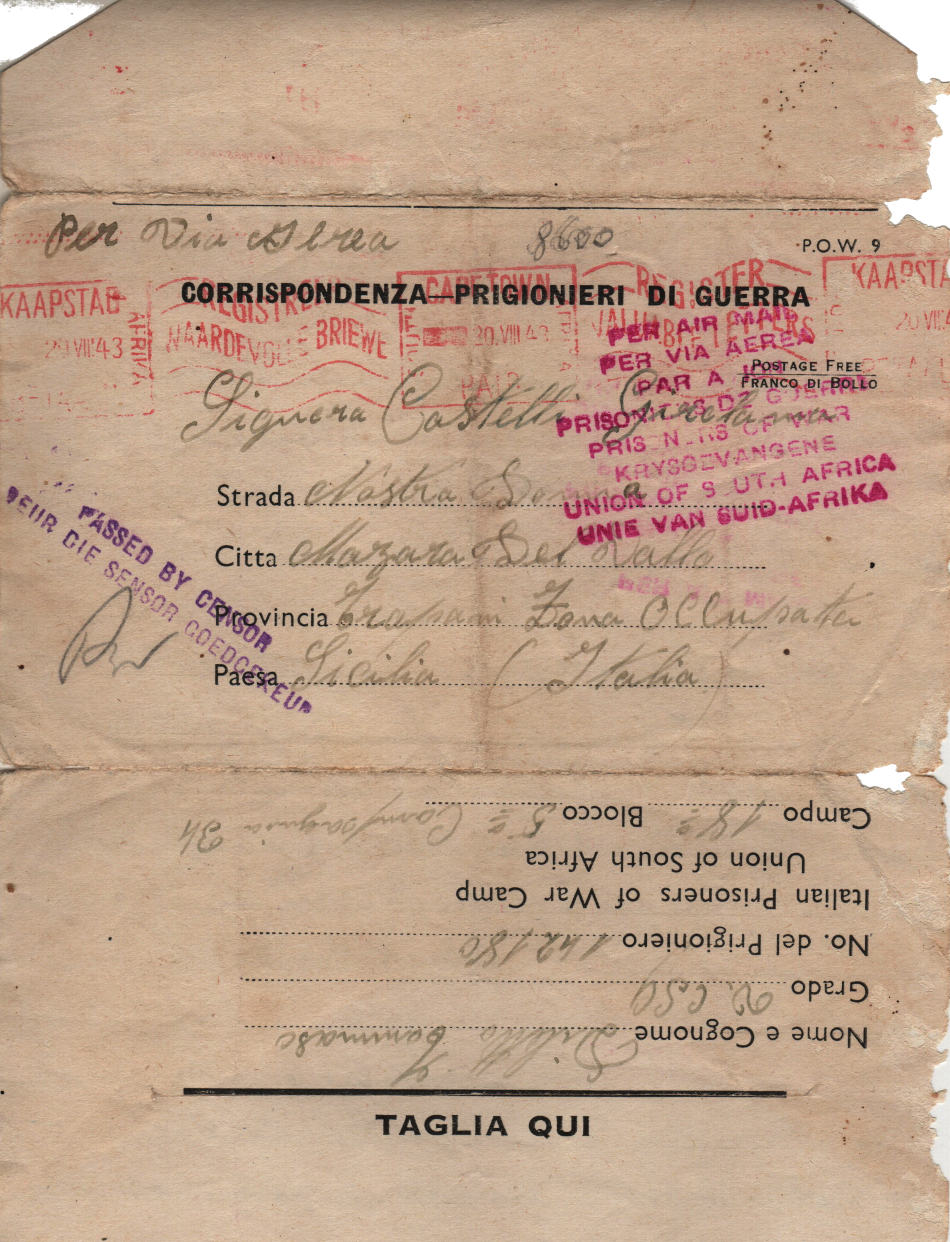 Per Via Aerea 8600
P.O.W. 9
KAAPSTAD
20 VIII 43
AFRIKA
REGISTREER
WAARDEVOLLE BRIEWE
CAPETOWN
20.VIII.43
PAID
REGISTER
VALUABLE LETTERS
KAAPSTA
20 VIII 4
CORRISPONDENZA—PRIGIONIERI DI GUERRA
PER AIR MAIL
PER VIA AEREA
PAR A
PRISONIERS DE GUERRE
PRISONERS OF WAR
KRYSGEVANGENE
UNION OF SOUTH AFRICA
UNIE VAN SUID-AFRIKA
POSTAGE FREE
FRANCO DI BOLLO
Signora Castelli Girolama
Strada Nostra Donna
Citta Mazara Del Vallo
Provincia Trapani Zona OCCupata
Paesa Sicilia (Italia)
PASSED BY CENSOR
DEUR DIE SENSOR GOEDGEKEUR
Nome e Cognome Tommaso
Grado
No. del Prigioniero 142180
Italian Prisoners of War Camp
Union of South Africa
Campo 18º Blocco 5º Compagnia 34
TAGLIA QUI